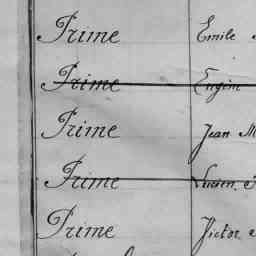 Prime Emile
Prime Eugèn
Prime Jean M
Prime Lucien
Prime Victor